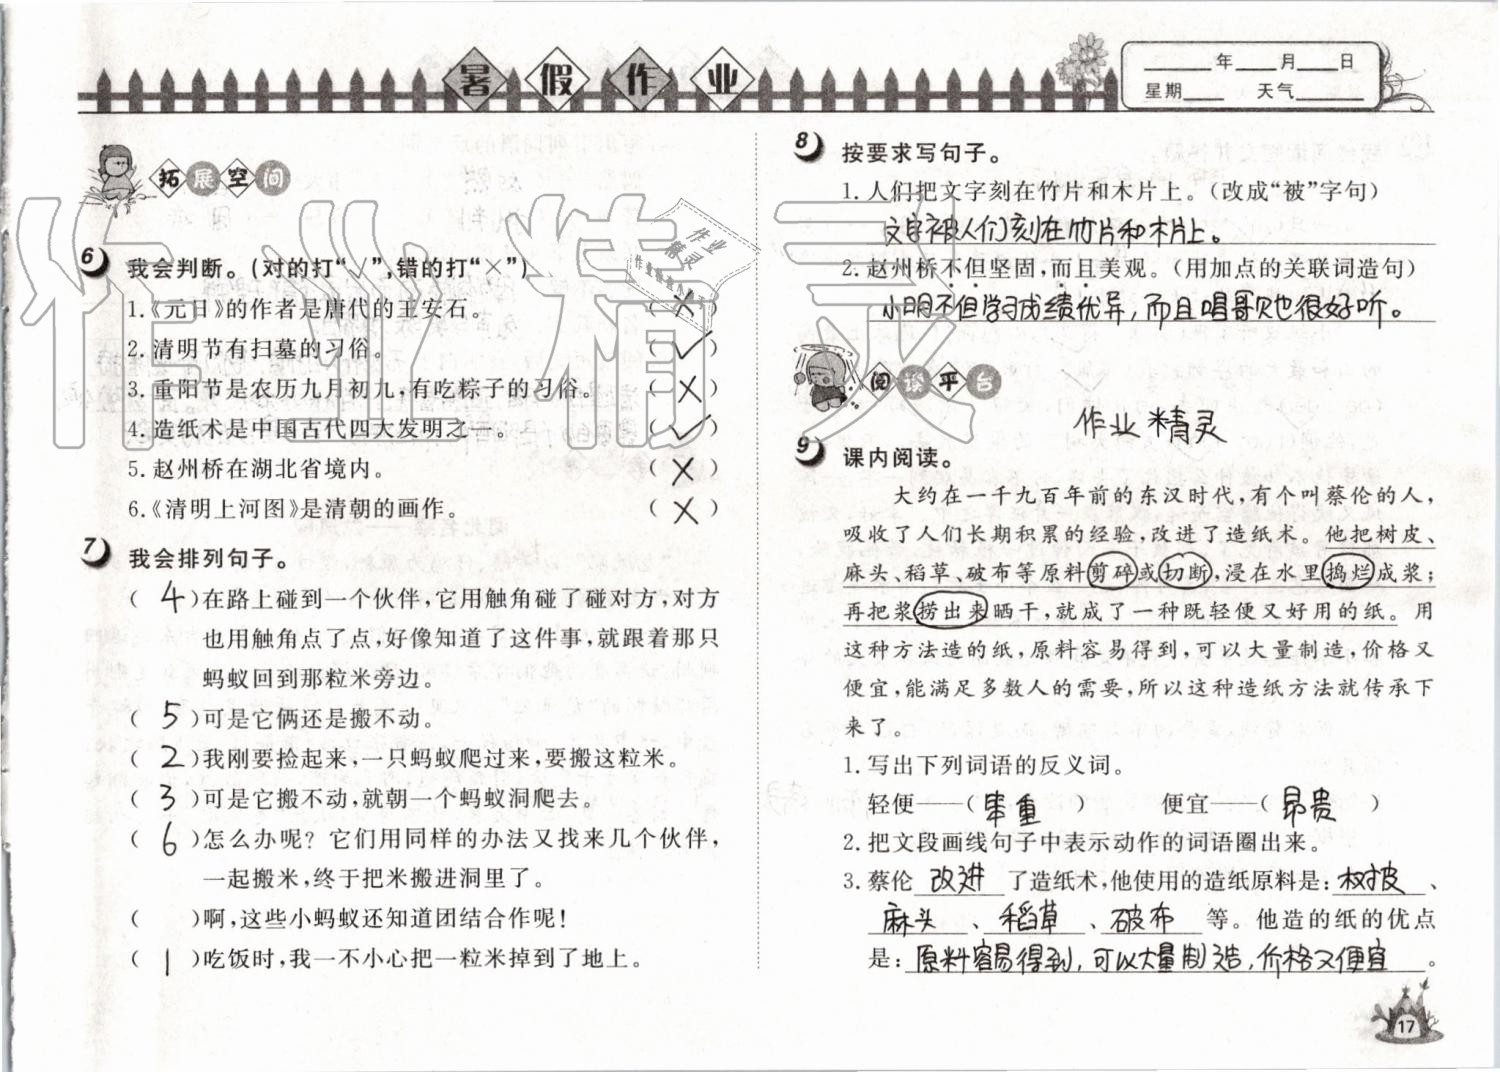 暑假作业
____年____月____日
星期____ 天气______
拓展空间
6 我会判断。(对的打“√”,错的打“×”)
1.《元日》的作者是唐代的王安石。 ( × )
2. 清明节有扫墓的习俗。 ( √ )
3. 重阳节是农历九月初九,有吃粽子的习俗。 ( × )
4. 造纸术是中国古代四大发明之一。 ( √ )
5. 赵州桥在湖北省境内。 ( × )
6.《清明上河图》是清朝的画作。 ( × )
7 我会排列句子。
( 4 )在路上碰到一个伙伴,它用触角碰了碰对方,对方
也用触角点了点,好像知道了这件事,就跟着那只
蚂蚁回到那粒米旁边。
( 5 )可是它俩还是搬不动。
( 2 )我刚要捡起来,一只蚂蚁爬过来,要搬这粒米。
( 3 )可是它搬不动,就朝一个蚂蚁洞爬去。
( 6 )怎么办呢?它们用同样的办法又找来几个伙伴,
一起搬米,终于把米搬进洞里了。
( )啊,这些小蚂蚁还知道团结合作呢!
( 1 )吃饭时,我一不小心把一粒米掉到了地上。
8 按要求写句子。
1. 人们把文字刻在竹片和木片上。(改成“被”字句)
文字被人们刻在竹片和木片上。
2. 赵州桥不但坚固,而且美观。(用加点的关联词造句)
小明不但学习成绩优异,而且唱歌也很好听。
阅读平台
作业精灵
9 课内阅读。
大约在一千九百年前的东汉时代,有个叫蔡伦的人,
吸收了人们长期积累的经验,改进了造纸术。他把树皮、
麻头、稻草、破布等原料剪碎或切断,浸在水里捣烂成浆;
再把浆捞出来晒干,就成了一种既轻便又好用的纸。用
这种方法造的纸,原料容易得到,可以大量制造,价格又
便宜,能满足多数人的需要,所以这种造纸方法就传承下
来了。
1. 写出下列词语的反义词。
轻便——( 笨重 ) 便宜——( 昂贵 )
2. 把文段画线句子中表示动作的词语圈出来。
3. 蔡伦 改进 了造纸术,他使用的造纸原料是: 树皮 、
麻头 、 稻草 、 破布 等。他造的纸的优点
是: 原料容易得到,可以大量制造,价格又便宜 。
17
作业精灵
作业精灵